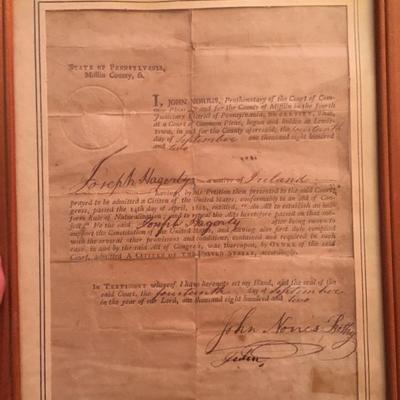 State of Pennsylvania,
Mifflin County, ss.
I, JOHN NORRIS, Prothonotary of the Court of Com-
mon Pleas, in and for the County of Mifflin in the fourth
Judiciary District of Pennsylvania, DO CERTIFY, That,
at a Court of Common Pleas, begun and holden at Lewis-
town, in and for the County aforesaid, the
day of September one thousand eight hundred
and two
Joseph Hagerty a native of Ireland
having, by his Petition then presented to the said Court,
prayed to be admitted a Citizen of the United States, conformably to an Act of
Congress, passed the 14th day of April, 1802, entitled, "An Act to establish an uni-
form Rule of Naturalization; and to repeal the Acts heretofore passed on that sub-
ject." He the said Joseph Hagerty after being sworn to
support the Constitution of the United States, and having also duly complied
with the several other provisions and conditions, contained and required in such
case, in and by the said Act of Congress, was thereupon, by ORDER of the said
Court, admitted A CITIZEN OF THE UNITED STATES, accordingly.
IN TESTIMONY whereof I have hereunto set my Hand, and the seal of the
said Court, the fourteenth day of September
in the year of our Lord, one thousand eight hundred and two
John Norris